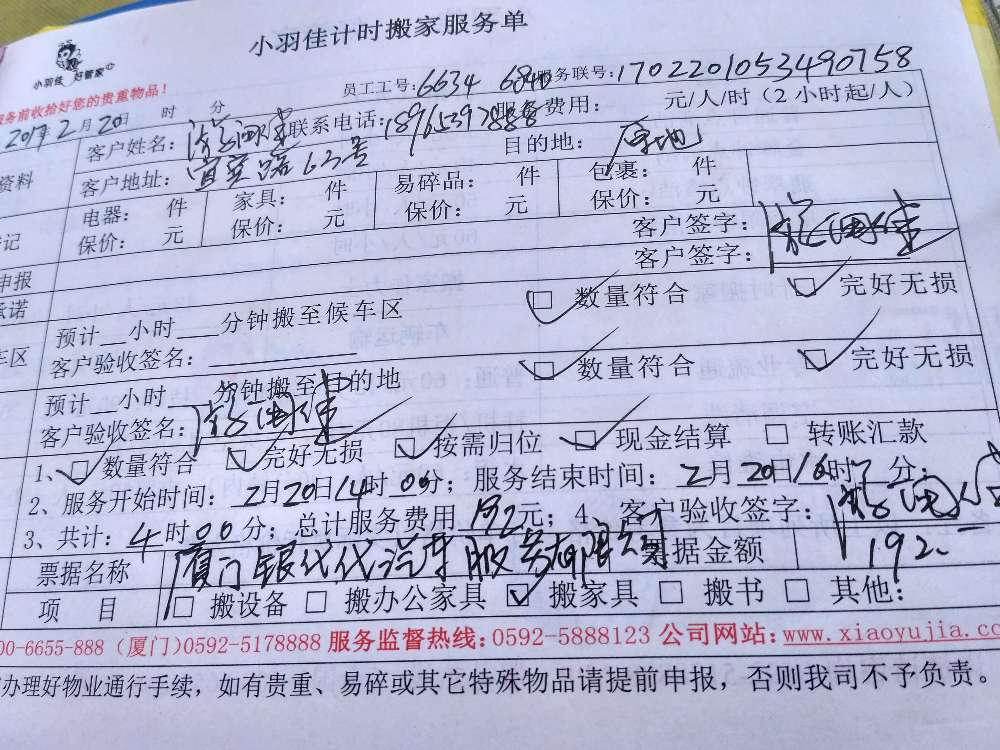 小羽佳计时搬家服务单
小羽佳 好管家
服务前收拾好您的贵重物品！
员工工号：6634 6840 服务联号：1702201053490758
2017年2月20日 时 分
客户姓名： 联系电话：18965397888 服务费用： 元/人/时（2小时起/人）
资料
客户地址：宜宾路63号 目的地：原地
电器： 件 家具： 件 易碎品： 件 包裹： 件
登记
保价： 元 保价： 元 保价： 元 保价： 元
申报
客户签字：
承诺
客户签字：
预计__小时___分钟搬至候车区
车区
□ 数量符合 □ 完好无损
客户验收签名：
预计__小时___分钟搬至目的地
□ 数量符合 □ 完好无损
客户验收签名：
1、□ 数量符合 □ 完好无损 □ 按需归位 □ 现金结算 □ 转账汇款
2、服务开始时间：2月20日14时00分；服务结束时间：2月20日16时 分；
3、共计：4时00分；总计服务费用 192元；4、客户验收签字：
票据名称 厦门银代代汽车服务有限公司 票据金额 192.
项 目 □ 搬设备 □ 搬办公家具 ☑ 搬家具 □ 搬书 □ 其他：
00-6655-888（厦门）0592-5178888 服务监督热线：0592-5888123 公司网站：www.xiaoyujia.co
办理好物业通行手续，如有贵重、易碎或其它特殊物品请提前申报，否则我司不予负责。